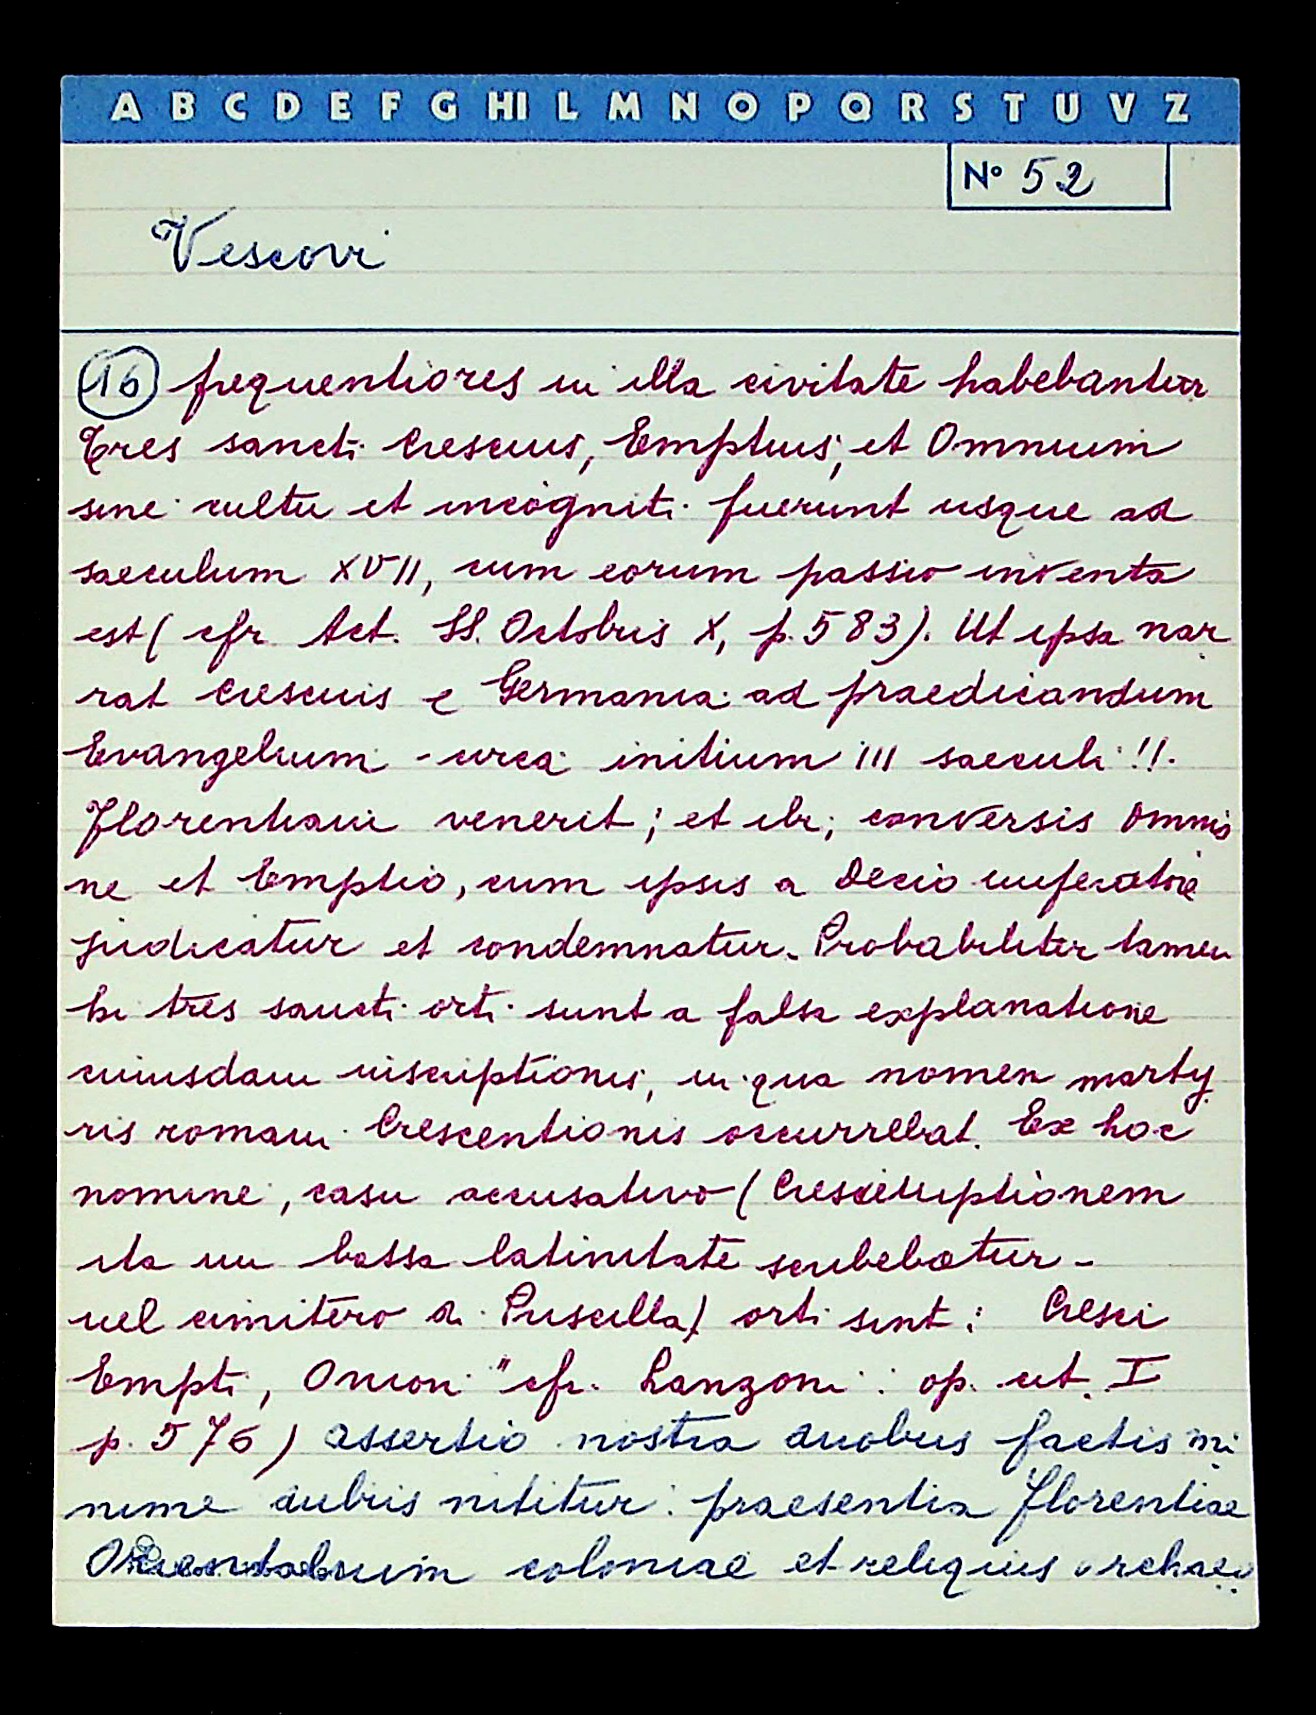 A B C D E F G HI L M N O P Q R S T U V Z
N° 52
Vescovi
16 frequentiores in illa civitate habebantur
Tres sancti Crescius, Emptius, et Omnium
sine cultu et incogniti fuerunt usque ad
saeculum XVII, cum eorum passio inventa
est (cfr. Act. SS. Octobris X, p. 583). Ut ipsa nar
rat Crescius e Germania ad praedicandum
Evangelium - circa initium III saeculi !!.
Florentiam venerit; et ibi, conversis Omnio
ne et Emptio, cum ipsis a Decio imperatore
judicatur et condemnatur. Probabiliter tamen
hi tres sancti orti sunt a falsa explanatione
cuiusdam inscriptionis, in qua nomen marty
ris romani Crescentionis occurrebat. Ex hoc
nomine, casu accusativo (Crescemptionem
ita in bassa latinitate scribebatur -
nel cimitero di Priscilla) orti sint: Cresci
Empti, Onion " cfr. Lanzoni: op. cit. I
p. 576) assertio nostra duobus factis mi
nime dubiis nititur: praesentia Florentiae
Orientalium coloniae et reliquiis archaeo